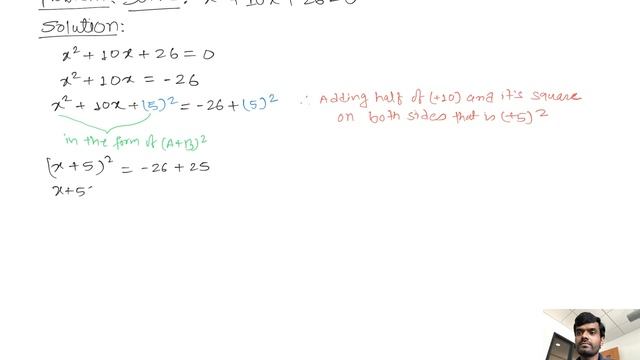 Solution:
x² + 10x + 26 = 0
x² + 10x = -26
x² + 10x + (5)² = -26 + (5)²
∴ Adding half of (+10) and it's square
on both sides that is (+5)²
in the form of (A+B)²
(x + 5)² = -26 + 25
x+5